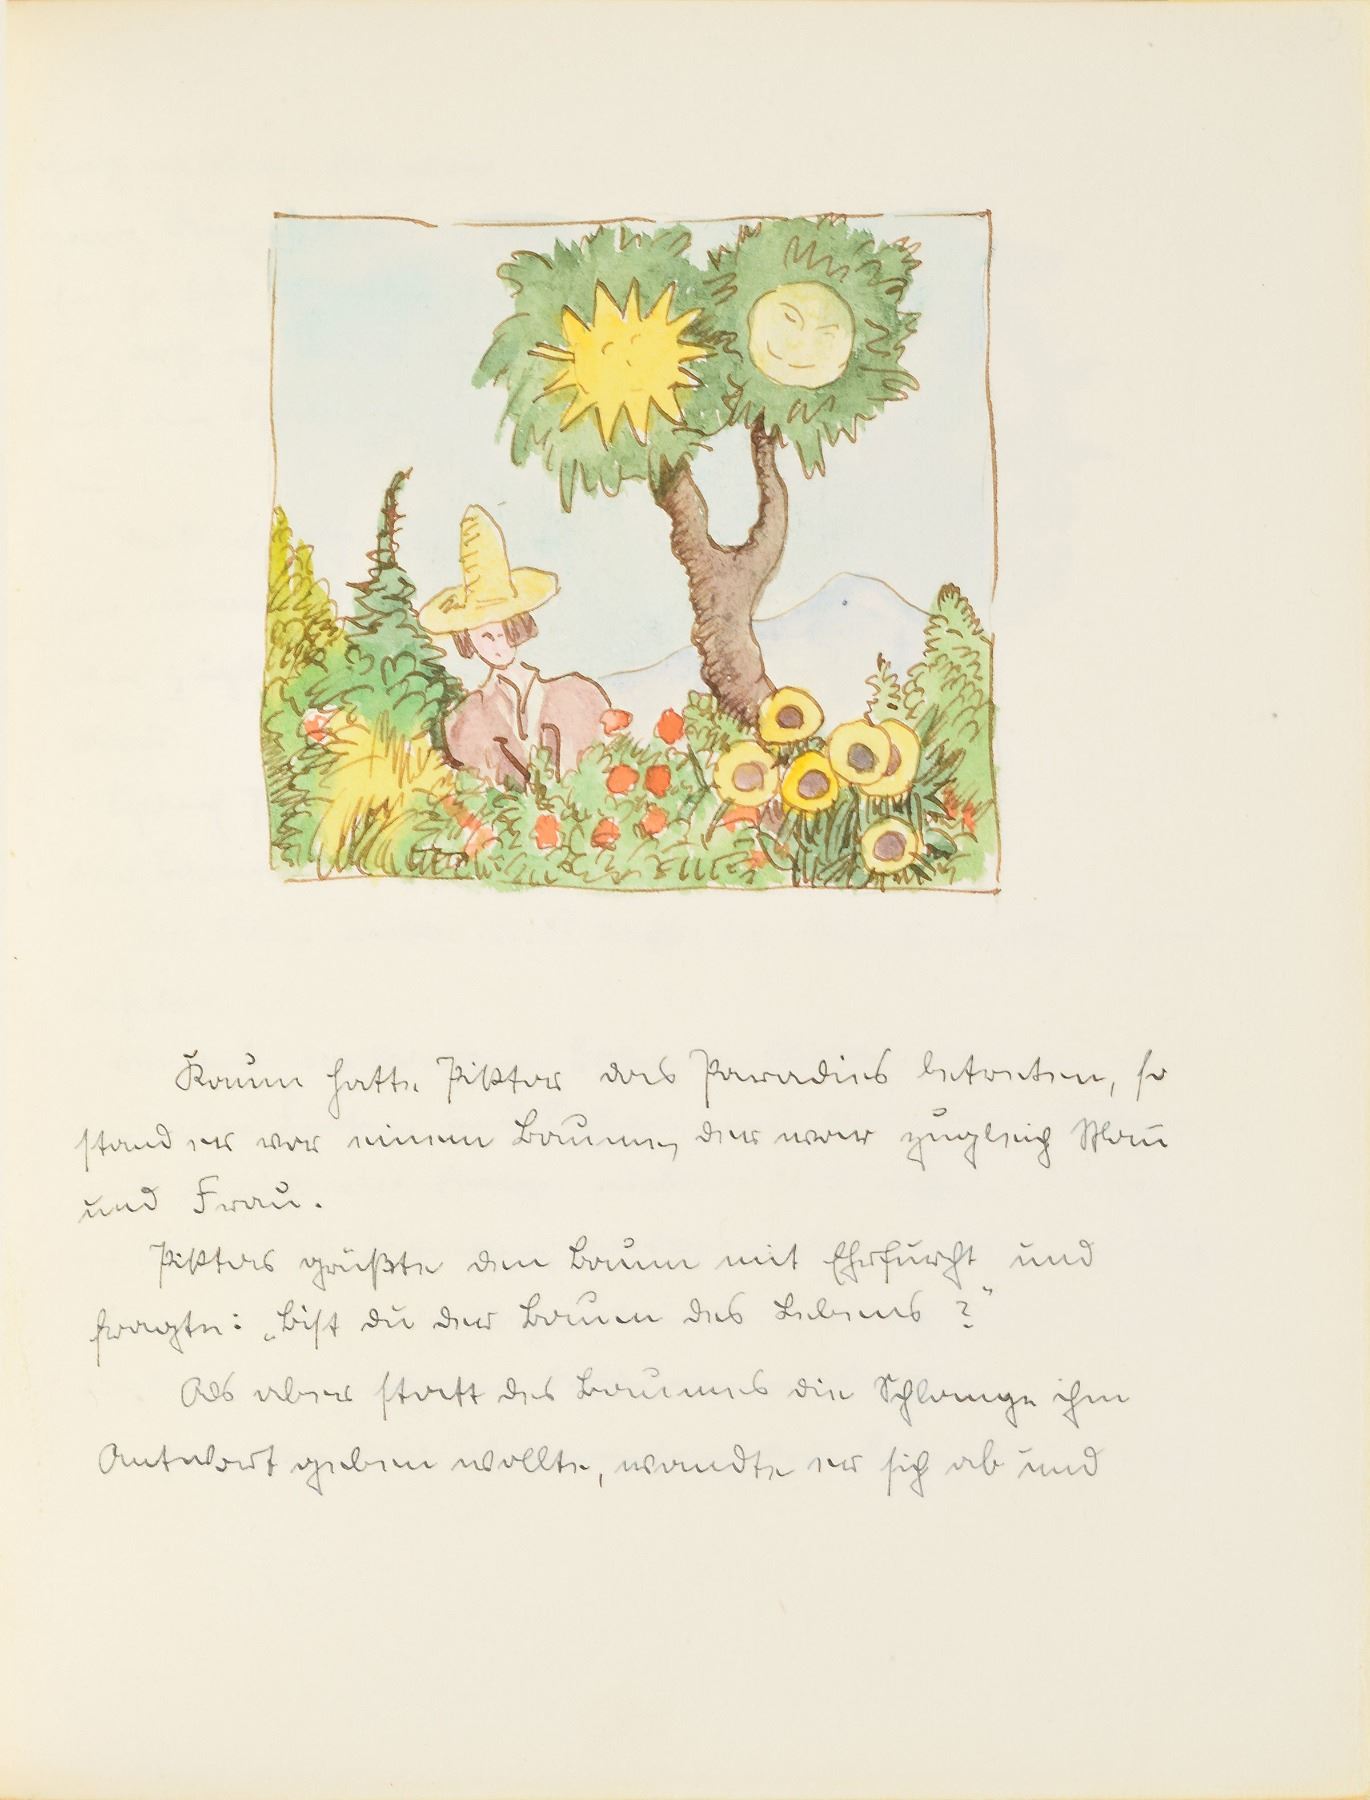 Kaum hatte Piktor das Paradies betreten, so
stand er vor einem Baume, der war zugleich Mann
und Frau.
Piktor grüßte den Baum mit Ehrfurcht und
fragte: „Bist du der Baum des Lebens?"
Als aber statt des Baumes die Schlange ihm
Antwort geben wollte, wandte er sich ab und